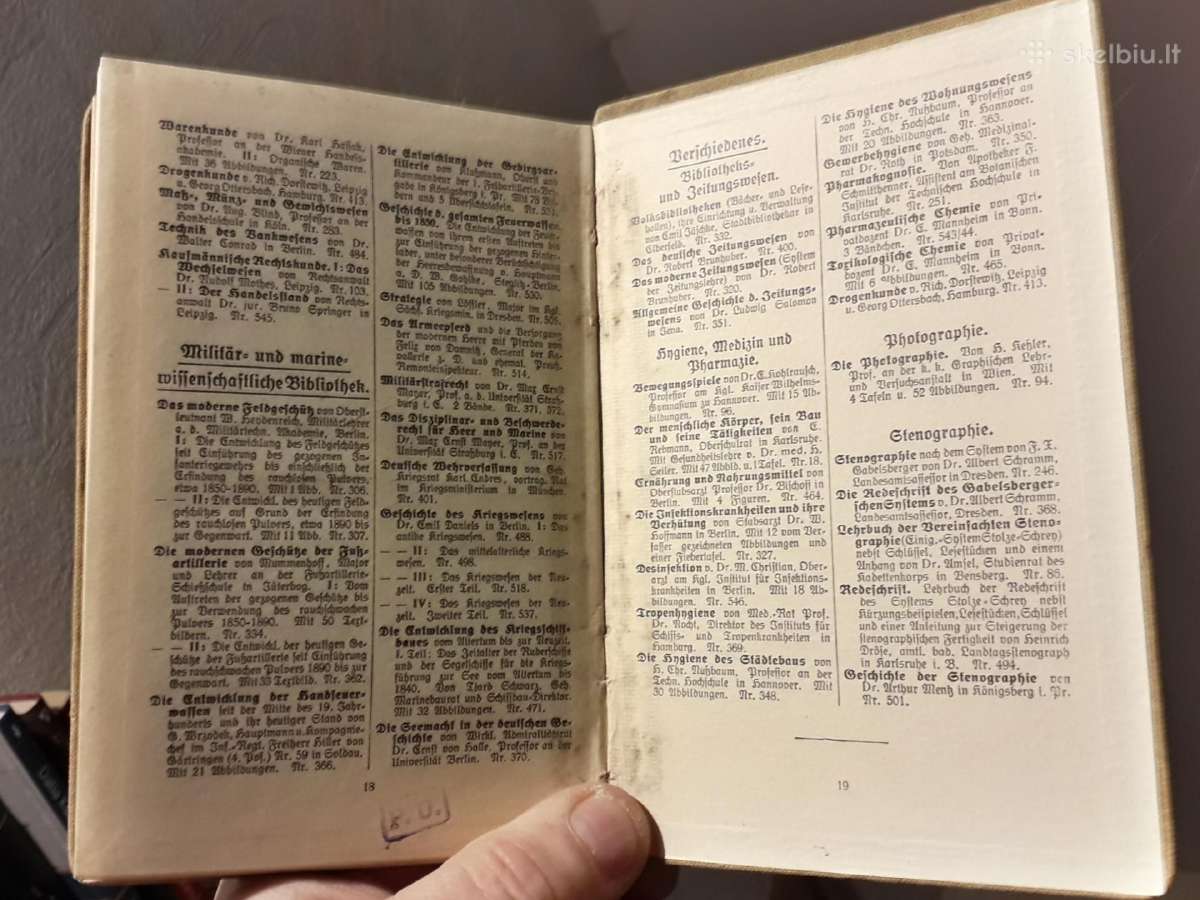 Warenkunde von Dr. Karl Hassak,
Professor an der Wiener Handels-
akademie. II: Organische Waren.
Mit 36 Abbildungen. Nr. 223.
Drogenkunde v. Rich. Dorstewitz, Leipzig
u. Georg Ottersbach, Hamburg. Nr. 413.
Maß-, Münz- und Gewichtswesen
von Dr. Aug. Blind, Professor an der
Handelsschule in Köln. Nr. 283.
Technik des Bankwesens von Dr.
Walter Conrad in Berlin. Nr. 484.
Kaufmännische Rechtskunde. I: Das
Wechselwesen von Rechtsanwalt
Dr. Rudolf Mothes, Leipzig. Nr. 103.
— II: Der Handelsstand von Rechts-
anwalt Dr. jur. Bruno Springer in
Leipzig. Nr. 545.
Militär- und marine-
wissenschaftliche Bibliothek.
Das moderne Feldgeschütz von Oberst-
leutnant W. Heydenreich, Militärlehrer
a. d. Militärtechn. Akademie, Berlin.
I: Die Entwicklung des Feldgeschützes
seit Einführung des gezogenen In-
fanteriegewehrs bis einschließlich der
Erfindung des rauchlosen Pulvers,
etwa 1850-1890. Mit 1 Abb. Nr. 306.
— — II: Die Entwickl. des heutigen Feld-
geschützes auf Grund der Erfindung
des rauchlosen Pulvers, etwa 1890 bis
zur Gegenwart. Mit 11 Abb. Nr. 307.
Die modernen Geschütze der Fuß-
artillerie von Mummenhoff, Major
und Lehrer an der Fußartillerie-
Schießschule in Jüterbog. I: Vom
Auftreten der gezogenen Geschütze bis
zur Verwendung des rauchschwachen
Pulvers 1850-1890. Mit 50 Text-
bildern. Nr. 334.
— — II: Die Entwickl. der heutigen Ge-
schütze der Fußartillerie seit Einführung
des rauchschwachen Pulvers 1890 bis zur
Gegenwart. Mit 33 Textbild. Nr. 362.
Die Entwicklung der Handfeuer-
waffen seit der Mitte des 19. Jahr-
hunderts und ihr heutiger Stand von
G. Wrzodek, Hauptmann u. Kompagnie-
chef im Inf.-Regt. Freiherr Hiller von
Gärtringen (4. Pos.) Nr. 59 in Soldau.
Mit 21 Abbildungen. Nr. 366.
Die Entwicklung der Gebirgsar-
tillerie von Klußmann, Oberst und
Kommandeur der 1. Feldartillerie-Bri-
gade in Königsberg i. Pr. Mit 78 Bil-
dern und 5 Übersichtstafeln. Nr. 531.
Geschichte d. gesamten Feuerwaffen
bis 1850. Die Entwicklung der Feuer-
waffen von ihrem ersten Auftreten bis
zur Einführung der gezogenen Hinter-
lader, unter besonderer Berücksichtigung
der Heeresbewaffnung v. Hauptmann
a. D. W. Gohlke, Steglitz-Berlin.
Mit 105 Abbildungen. Nr. 530.
Strategie von Löffler, Major im Kgl.
Sächs. Kriegsmin. in Dresden. Nr. 505.
Das Armeepferd und die Versorgung
der modernen Heere mit Pferden von
Felix von Damnitz, General der Ka-
vallerie z. D. und ehemal. Preuß.
Remonteinspekteur. Nr. 514.
Militärstrafrecht von Dr. Max Ernst
Mayer, Prof. a. d. Universität Straß-
burg i. E. 2 Bände. Nr. 371, 372.
Das Disziplinar- und Beschwerde-
recht für Heer und Marine von
Dr. Max Ernst Mayer, Prof. an der
Universität Straßburg i. E. Nr. 517.
Deutsche Wehrverfassung von Geh.
Kriegsrat Karl Endres, vortrag. Rat
im Kriegsministerium in München.
Nr. 401.
Geschichte des Kriegswesens von
Dr. Emil Daniels in Berlin. I: Das
antike Kriegswesen. Nr. 488.
— — II: Das mittelalterliche Kriegs-
wesen. Nr. 498.
— — III: Das Kriegswesen der Neu-
zeit. Erster Teil. Nr. 518.
— — IV: Das Kriegswesen der Neu-
zeit. Zweiter Teil. Nr. 537.
Die Entwicklung des Kriegsschiff-
baues vom Altertum bis zur Neuzeit.
I. Teil: Das Zeitalter der Ruderschiffe
und der Segelschiffe für die Kriegs-
führung zur See vom Altertum bis
1840. Von Tjard Schwarz, Geh.
Marinebaurat und Schiffbau-Direktor.
Mit 32 Abbildungen. Nr. 471.
Die Seemacht in der deutschen Ge-
schichte von Wirkl. Admiralitätsrat
Dr. Ernst von Halle, Professor an der
Universität Berlin. Nr. 370.
18
Verschiedenes.
Bibliotheks-
und Zeitungswesen.
Volksbibliotheken (Bücher- und Lese-
hallen), ihre Einrichtung u. Verwaltung
von Emil Jäschke, Stadtbibliothekar in
Elberfeld. Nr. 332.
Das deutsche Zeitungswesen von
Dr. Robert Brunhuber. Nr. 400.
Das moderne Zeitungswesen (System
der Zeitungslehre) von Dr. Robert
Brunhuber. Nr. 320.
Allgemeine Geschichte d. Zeitungs-
wesens von Dr. Ludwig Salomon
in Jena. Nr. 351.
Hygiene, Medizin und
Pharmazie.
Bewegungsspiele von Dr. E. Kohlrausch,
Professor am Kgl. Kaiser Wilhelms-
Gymnasium zu Hannover. Mit 15 Ab-
bildungen. Nr. 96.
Der menschliche Körper, sein Bau
und seine Tätigkeiten von E.
Rebmann, Oberschulrat in Karlsruhe.
Mit Gesundheitslehre v. Dr. med. H.
Seiler. Mit 47 Abbild. u. 1 Tafel. Nr. 18.
Ernährung und Nahrungsmittel von
Oberstabsarzt Professor Dr. Bischoff in
Berlin. Mit 4 Figuren. Nr. 464.
Die Infektionskrankheiten und ihre
Verhütung von Stabsarzt Dr. W.
Hoffmann in Berlin. Mit 12 vom Ver-
fasser gezeichneten Abbildungen und
einer Fiebertafel. Nr. 327.
Desinfektion v. Dr. M. Christian, Ober-
arzt am Kgl. Institut für Infektions-
krankheiten in Berlin. Mit 18 Ab-
bildungen. Nr. 546.
Tropenhygiene von Med.-Rat Prof.
Dr. Nocht, Direktor des Instituts für
Schiffs- und Tropenkrankheiten in
Hamburg. Nr. 369.
Die Hygiene des Städtebaus von
H. Chr. Nußbaum, Professor an der
Techn. Hochschule in Hannover. Mit
30 Abbildungen. Nr. 348.
Die Hygiene des Wohnungswesens
von H. Chr. Nußbaum, Professor an
der Techn. Hochschule in Hannover.
Mit 20 Abbildungen. Nr. 363.
Gewerbehygiene von Geh. Medizinal-
rat Dr. Roth in Potsdam. Nr. 350.
Pharmakognosie. Von Apotheker F.
Schmitthenner, Assistent am Botanischen
Institut der Technischen Hochschule in
Karlsruhe. Nr. 251.
Pharmazeutische Chemie von Pri-
vatdozent Dr. E. Mannheim in Bonn.
3 Bändchen. Nr. 543/44.
Toxikologische Chemie von Privat-
dozent Dr. E. Mannheim in Bonn.
Mit 6 Abbildungen. Nr. 465.
Drogenkunde v. Rich. Dorstewitz, Leipzig
u. Georg Ottersbach, Hamburg. Nr. 413.
Photographie.
Die Photographie. Von H. Keßler,
Prof. an der k. k. Graphischen Lehr-
und Versuchsanstalt in Wien. Mit
4 Tafeln u. 52 Abbildungen. Nr. 94.
Stenographie.
Stenographie nach dem System von F. X.
Gabelsberger von Dr. Albert Schramm,
Landesamtsassessor in Dresden. Nr. 246.
Die Redeschrift des Gabelsberger-
schen Systems v. Dr. Albert Schramm,
Landesamtsassessor, Dresden. Nr. 368.
Lehrbuch der Vereinfachten Steno-
graphie (Einig.-System Stolze-Schrey)
nebst Schlüssel, Lesestücken und einem
Anhang von Dr. Amsel, Studienrat des
Kadettenkorps in Bensberg. Nr. 86.
Redeschrift. Lehrbuch der Redeschrift
des Systems Stolze-Schrey nebst
Kürzungsbeispielen, Lesestücken, Schlüssel
und einer Anleitung zur Steigerung der
stenographischen Fertigkeit von Heinrich
Dröse, amtl. bad. Landtagsstenograph
in Karlsruhe i. B. Nr. 494.
Geschichte der Stenographie von
Dr. Arthur Mentz in Königsberg i. Pr.
Nr. 501.
19
skelbiu.lt